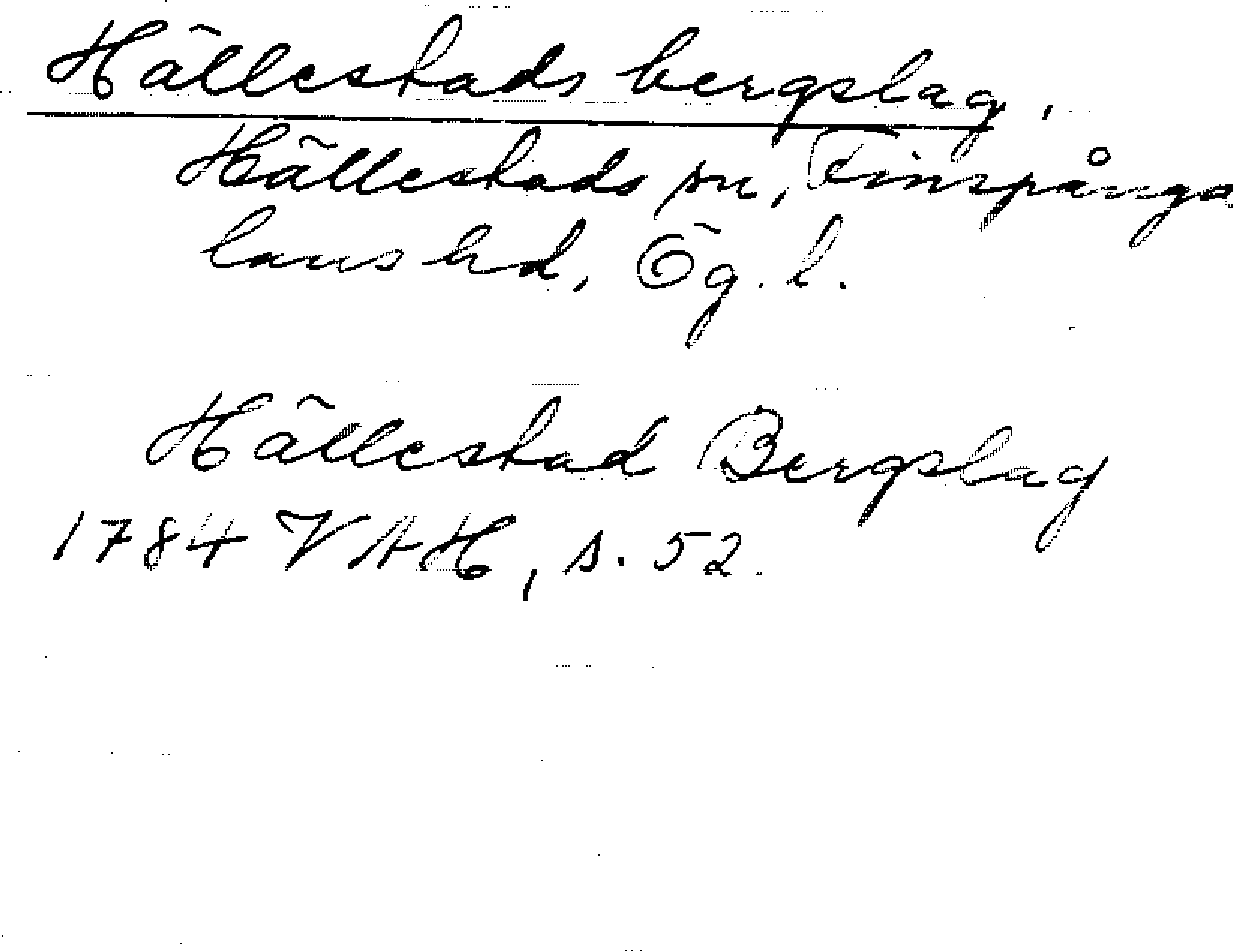 Hällestads bergslag.
Hällestads sn, Finspånga
läns hd, Ög. l.
Hällestad Bergslag
1784 VAH, s. 52.